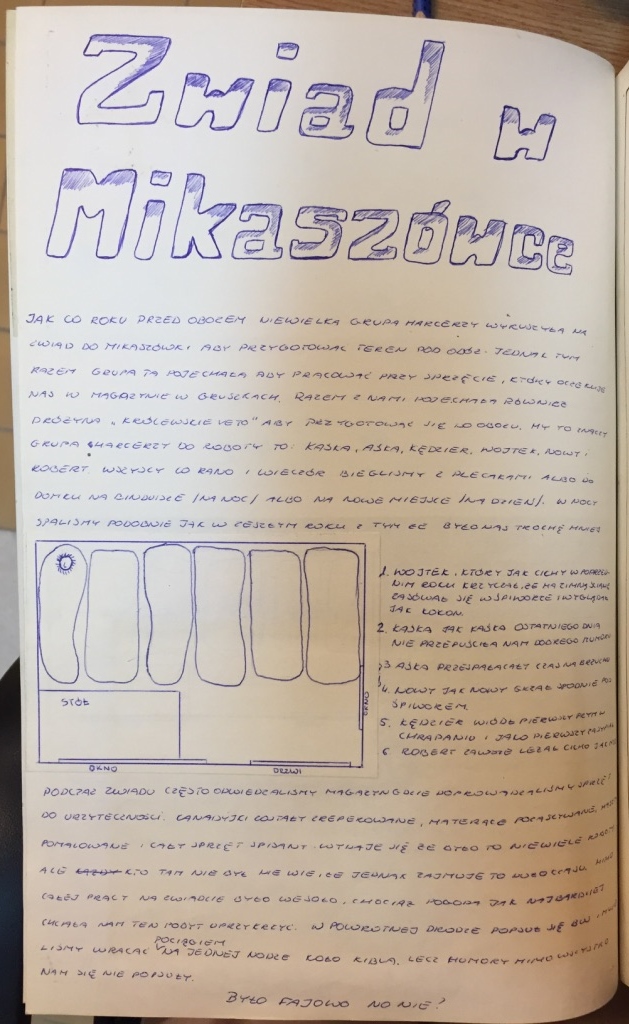 Zwiad w
Mikaszówce
JAK CO ROKU PRZED OBOZEM NIEWIELKA GRUPA HARCERZY WYRUSZYŁA NA
ZWIAD DO MIKASZÓWKI ABY PRZYGOTOWAĆ TEREN POD OBÓZ. JEDNAK TYM
RAZEM GRUPA TA POJECHAŁA ABY PRACOWAĆ PRZY SPRZĘCIE, KTÓRY OCZEKUJE
NAS W MAGAZYNIE W GRUSZKACH. RAZEM Z NAMI POJECHAŁA RÓWNIEŻ
DRÓŻYNA „KRÓLEWSKIE VETO" ABY PRZYGOTOWAĆ SIĘ DO OBOZU. MY TO ZNACZY
GRUPA HARCERZY DO ROBOTY TO: KAŚKA, AŚKA, KĘDZIER, WOJTEK, NOWY I
ROBERT. WSZYSCY CO RANO I WIECZÓR BIEGLIŚMY Z PLECAKAMI ALBO DO
DOMKU NA BINDUDZE /NA NOC/ ALBO NA NOWE MIEJSCE /NA DZIEŃ/. W NOCY
SPALIŚMY PODOBNIE JAK W ZESZŁYM ROKU Z TYM ŻE BYŁO NAS TROCHĘ MNIEJ
STÓŁ
OKNO
DRZWI
OKNO
1. WOJTEK, KTÓRY JAK CICHY W POPRZED-
NIM ROKU KRZYCZAŁ, ŻE MA ZIMNĄ
SIĘ W ŚPIWORZE I WYGLĄDAŁ
JAK KOKON.
2. KAŚKA JAK KAŚKA OSTATNIEGO DNIA
NIE PRZEPUŚCIŁA NAM DOBREGO HUMORU
3 AŚKA PRZESPAŁA CAŁY CZAS NA BRZUCHU
4. NOWY JAK NOWY SPODNIE POD
ŚPIWOREM.
5. KĘDZIER WIÓDŁ PIERWSZY PRYM W
CHRAPANIU I JAKO PIERWSZY
6 ROBERT ZAWSZE LEŻAŁ CICHO
PODCZAS ZWIADU CZĘSTO ODWIEDZALIŚMY MAGAZYN GDZIE DOPROWADZALIŚMY SPRZĘT
DO UŻYTECZNOŚCI. KANADYJKI ZOSTAŁY ZREPEROWANE, MATERACE POZASZYWANE,
POMALOWANE I CAŁY SPRZĘT SPISANY. WYDAJE SIĘ ŻE BYŁO TO NIEWIELE ROBOTY
ALE KTO TAM NIE BYŁ NIE WIE, ŻE JEDNAK ZAJMUJE TO CZASU. MIMO
CAŁEJ PRACY NA ZWIADZIE BYŁO WESOŁO, CHOCIAŻ POGODA JAK NAJBARDZIEJ
CHCIAŁA NAM TEN POBYT UPRZYKRZYĆ. W POWROTNEJ DRODZE POPSUŁ SIĘ BUS I MUSIE-
LIŚMY WRACAĆ POCIĄGIEM NA JEDNEJ NODZE KOŁO KIBLA, LECZ HUMORY MIMO WSZYSTKO
NAM SIĘ NIE POPSUŁY.
BYŁO FAJOWO NO NIE?